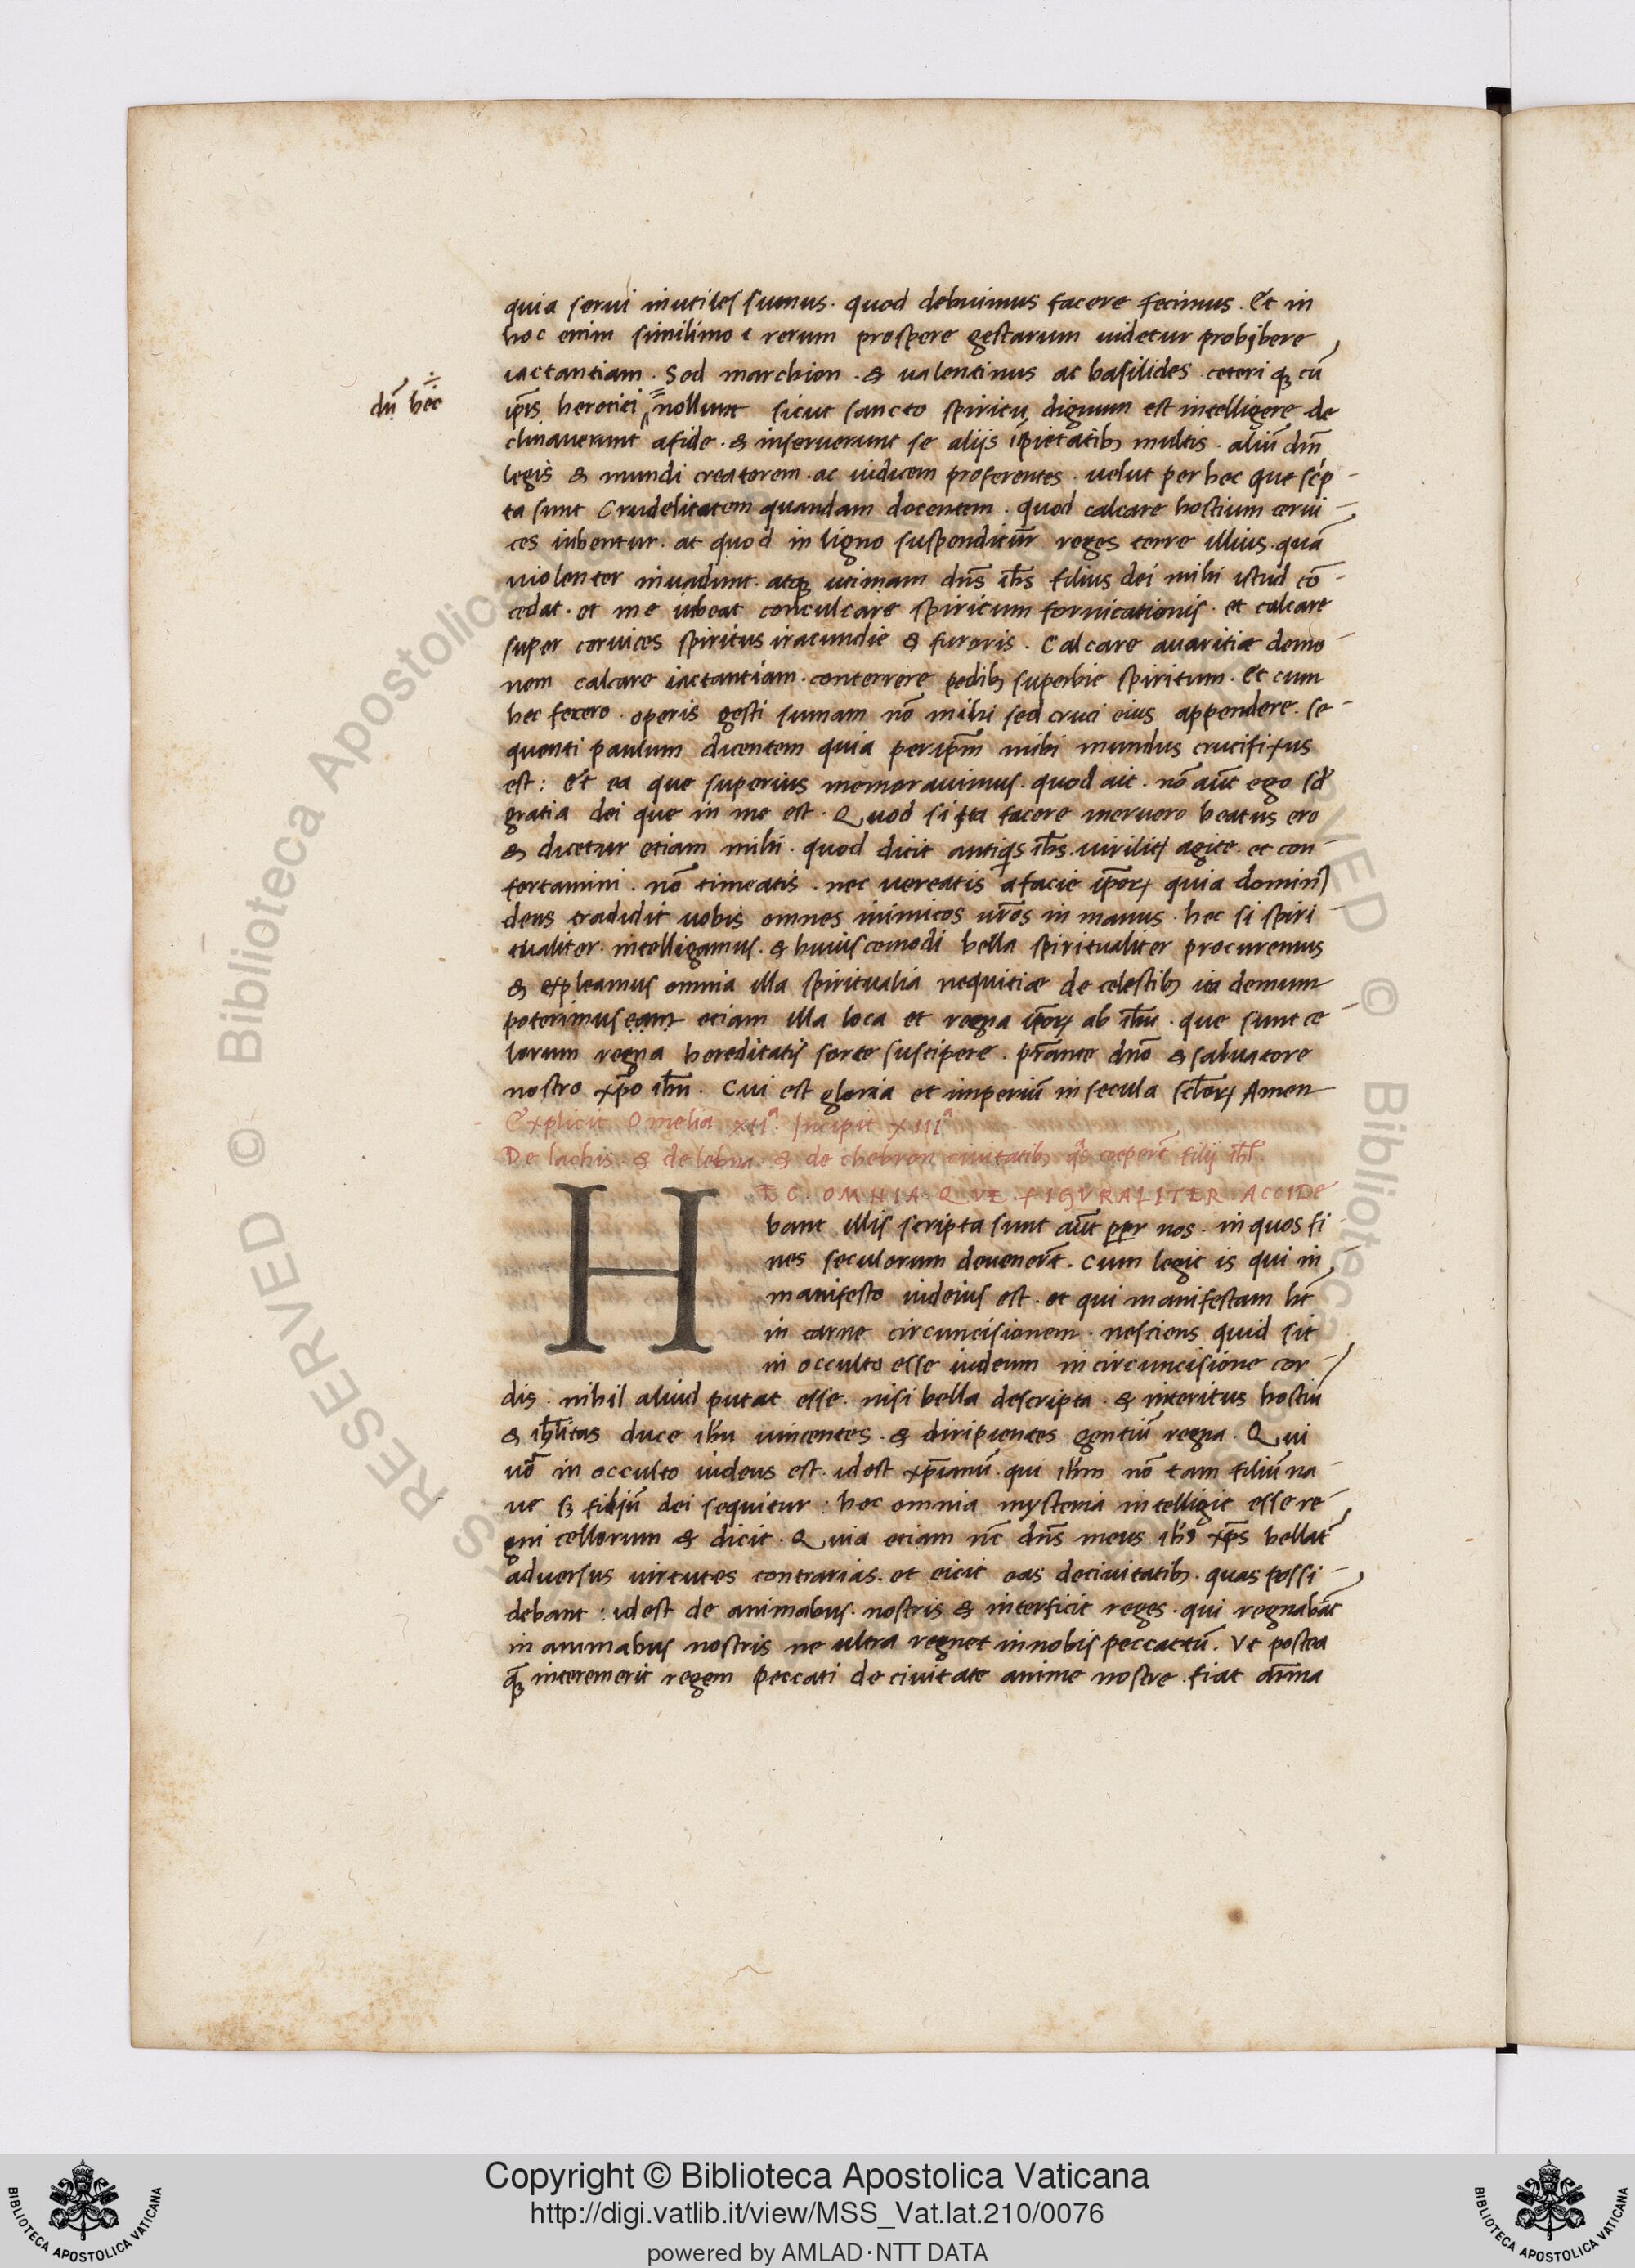 quia serui inutiles sumus. quod debuimus facere fecimus. Et in
hoc enim similimo i rerum prospere gestarum uidetur prohibere
iactantiam. Sed marchion. & ualentinus ac basilides. ceteriqꝫ cū
dū hec
ip̄is heretici nollunt sicut sancto spiritu dignum est intelligere de
clinauerunt afide. & inseruerunt se alijs īpietatibꝫ multis. aliū dm̄
legis & mundi creatorem. ac iudicem proferentes. uelut per hec que sc̄p-
ta sunt Crudelitatem quandam docentem. quod calcare hostium cerui-
ces iubentur. at quod in ligno suspenditur reges terre illius. quā
uiolenter inuadunt. atqꝫ utinam dn̄s ih̄s filius dei mihi istud cō-
cedat. et me iubeat conculcare spiritum fornicationis. et calcare
super ceruices spiritus iracundie & furoris. Calcare auaritiæ demo-
nem calcare iactantiam. conterrere pedibꝫ superbie spiritum. Et cum
hec fecero. operis gesti sumam nō mihi sed cruci eius appendere. se-
quenti paulum dicentem quia per ip̄m mihi mundus crucifixus
est: Et ea que superius memorauimus. quod ait. nō aūt ego sꝫ
gratia dei que in me est. Quod si ita facere meruero beatus ero
& dicetur etiam mihi. quod dicit antiqis ih̄s. uirilit agite. et con-
fortamini. nō timeatis. nec uereatis afacie ip̄oꝝ quia domin
deus tradidit uobis omnes inimicos ur̄os in manus. hec si spiri
tualiter. intelligamus. & huiuscemodi bella spiritualiter procuremus
& expleamus omnia illa spiritualia nequitiæ de celestibꝫ ita demum
poterimus etiam illa loca et regna ip̄oꝝ ab ih̄u. que sunt ce-
lorum regna hereditatis sorte suscipere. p̄stante dn̄o & saluatore
nostro xp̄o ih̄u. Cui est gloria et imperiū in secula sc̄loꝝ Amen
Explicit Omelia XIIª. Incipit XIIIª
De lachis. & de lebna. & de chebron ciuitatibꝫ qs ceperūt filij isrl̄.
HEC. OMNIA. QVE. FIGVRALITER. ACCIDE
bant illis scripta sunt aūt ppr nos. in quos fi
nes seculorum deuenerūt. Cum legit is qui in
manifesto iudeius est. et qui manifestam ht̄
in carne circuncisionem. nesciens quid sit
in occulto esse iudeum in circuncisione cor-
dis. nihil aliud putat esse. nisi bella descripta. & interitus hostiū
& isrl̄itas duce ih̄u uincentes. & diripientes gentiū regna. Qui
uō in occulto iudeus est. idest xp̄ianū. qui ih̄m nō tam filiū na-
ue sꝫ filiū dei sequitur: hec omnia mysteria intelligit esse re-
gni cellorum & dicit. Quia etiam nc̄ dn̄s meus ih̄s xp̄s bellat̄
aduersus uirtutes contrarias. et eicit eas deciuitatibꝫ. quas possi-
debant: idest de animabus. nostris & interficit reges. qui regnabāt
in animabus nostris ne ultra regnet innobis peccattū. Vt postea
qꝫ interemerit regem peccati de ciuitate anime nostre. fiat aīma
Copyright © Biblioteca Apostolica Vaticana
http://digi.vatlib.it/view/MSS_Vat.lat.210/0076
powered by AMLAD·NTT DATA
BIBLIOTECA APOSTOLICA VATICANA
BIBLIOTECA APOSTOLICA VATICANA